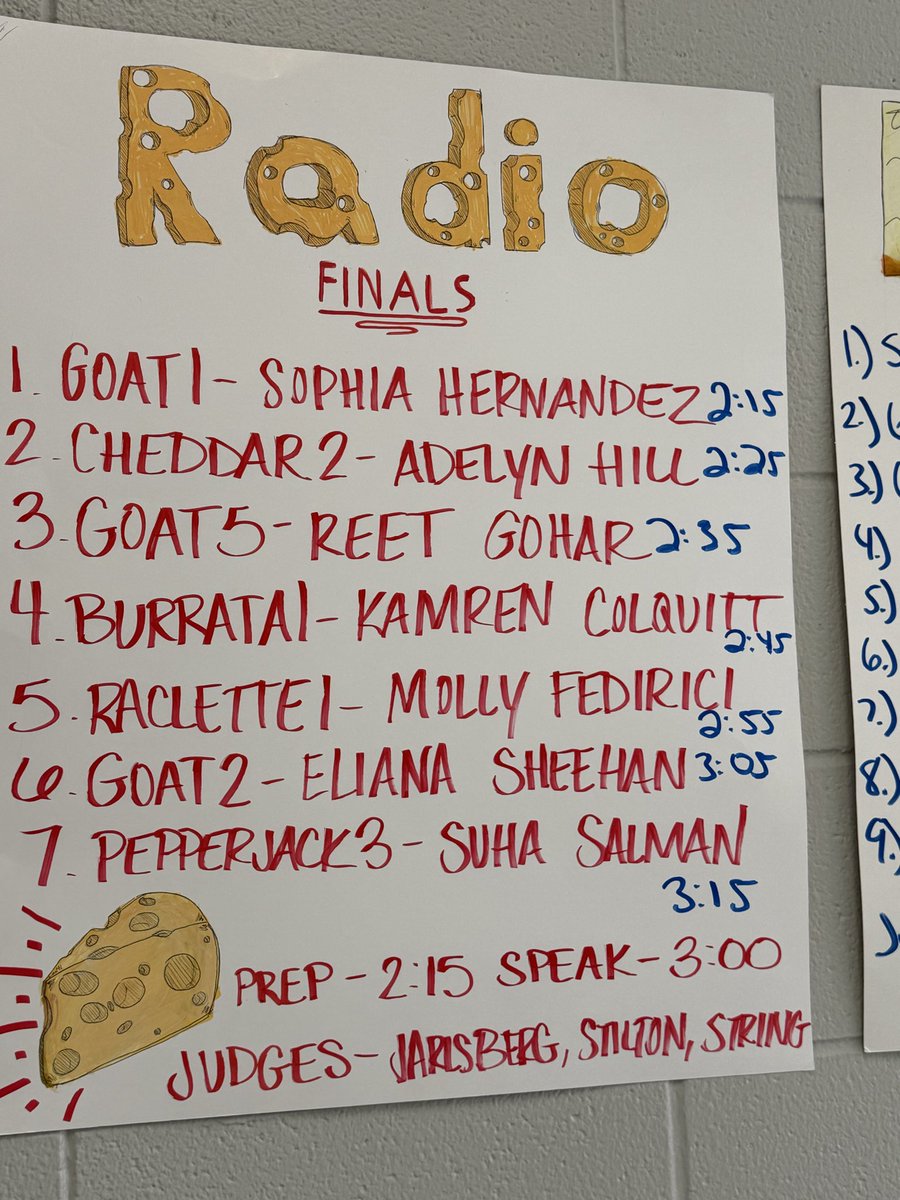 Radio
FINALS
1. GOAT1- SOPHIA HERNANDEZ 2:15
2. CHEDDAR2- ADELYN HILL 2:25
3. GOAT5- REET GOHAR 2:35
4. BURRATA1- KAMREN COLQUITT 2:45
5. RACLETTE1- MOLLY FEDIRICI 2:55
6. GOAT2- ELIANA SHEEHAN 3:05
7. PEPPERJACK3- SUHA SALMAN 3:15
PREP- 2:15 SPEAK- 3:00
JUDGES- JARLSBERG, STILTON, STRING
1.) S
2.)
3.)
4.)
5.)
6.)
7.)
8.)
9.)